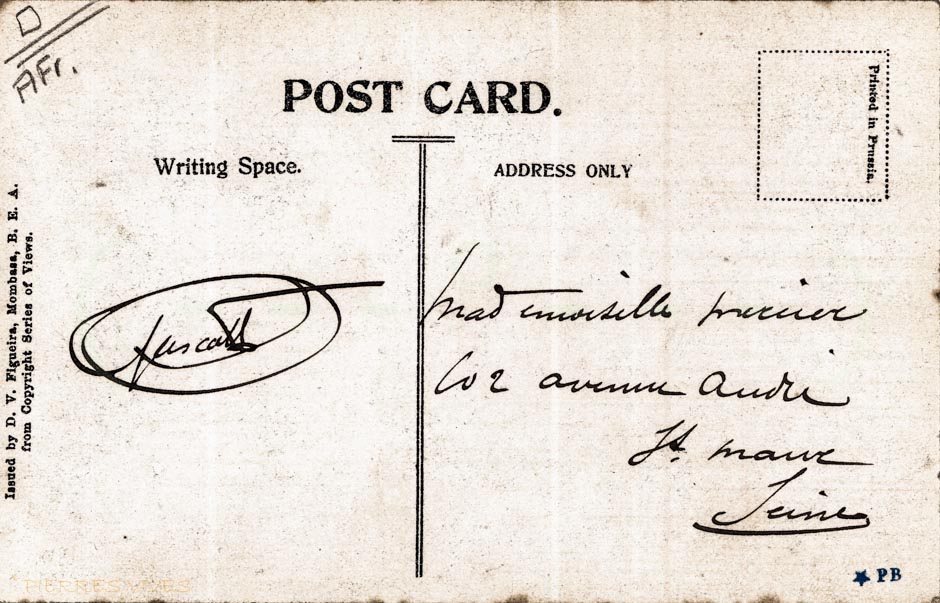 D
AFr.
POST CARD.
Printed in Prussia.
Writing Space.
ADDRESS ONLY
Issued by D. V. Figueira, Mombasa, B. E. A.
from Copyright Series of Views.
Mademoiselle
avenue André
St. Maur
Seine
PB